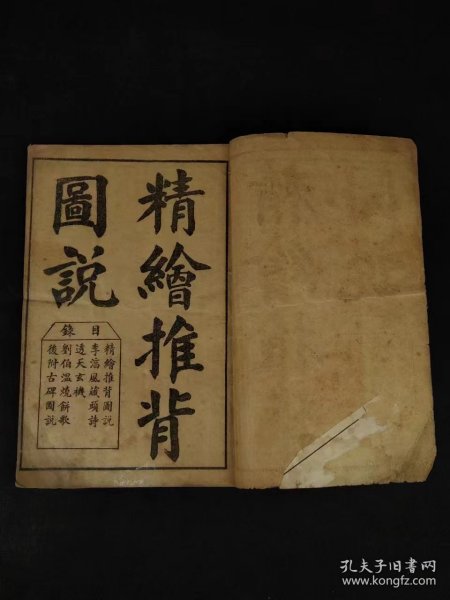 精繪推背
圖說
目錄
精繪推背圖説
李風頭詩
透天玄機
劉伯溫燒餅歌
後附古碑圖説
孔夫子旧书网
www.kongfz.com